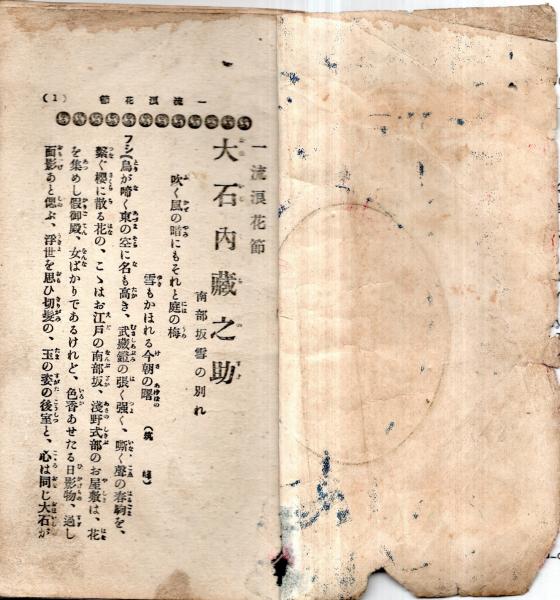 一流浪花節
(1)
一流浪花節
大石內藏之助
南部坂雪の別れ
吹く風の暗にもそれと庭の梅
雪もかほれる今朝の曙
フシ(鳥が啼く東の空に名も高き、武藏鐙の張く强く、嘶く聲の春駒を、
繫ぐ櫻に散る花の、こゝはお江戸の南部坂、淺野式部のお屋敷は、花
を集めし假御殿、女ばかりであるけれど、色香あせたる日影物、過し
面影あと偲ぶ、浮世を思ひ切髮の、玉の姿の後室と、心は同じ大石が